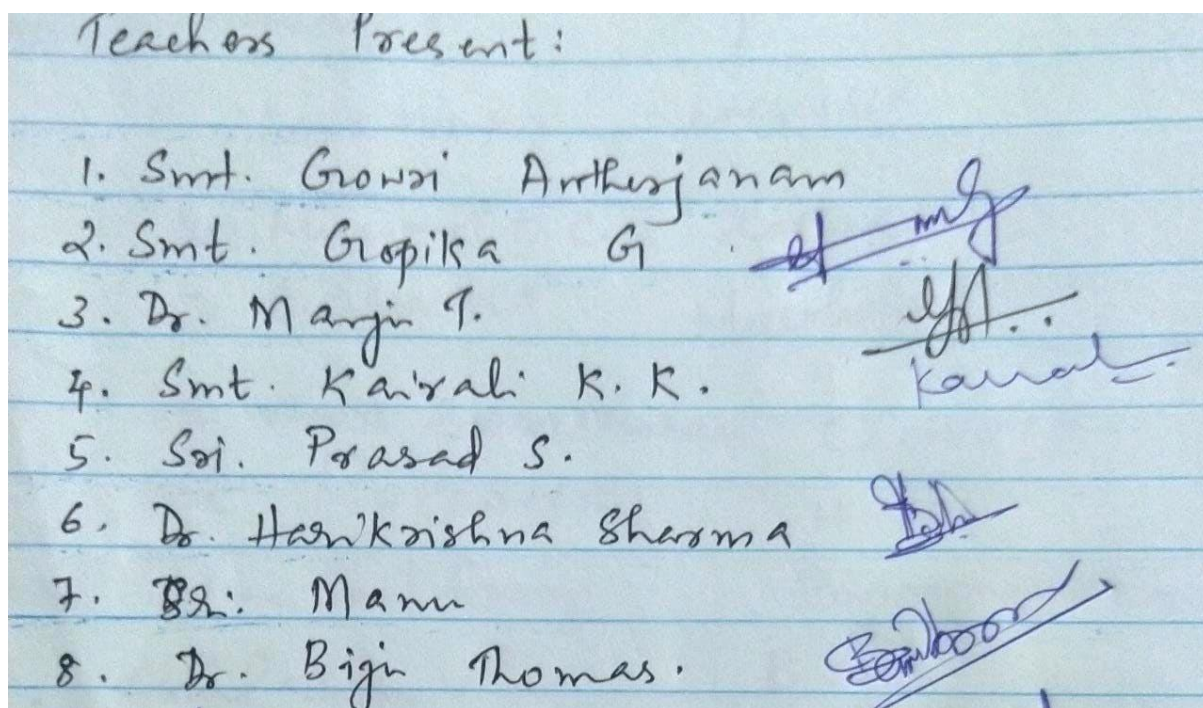 Teachers Present:
1. Smt. Gowri Antherjanam
2. Smt. Gopika G
3. Dr. Manju T.
4. Smt. Kairali K. K.
Kairali
5. Sri. Prasad S.
6. Dr. Harikrishna Sharma
7. Sri. Manu
8. Dr. Biju Thomas.